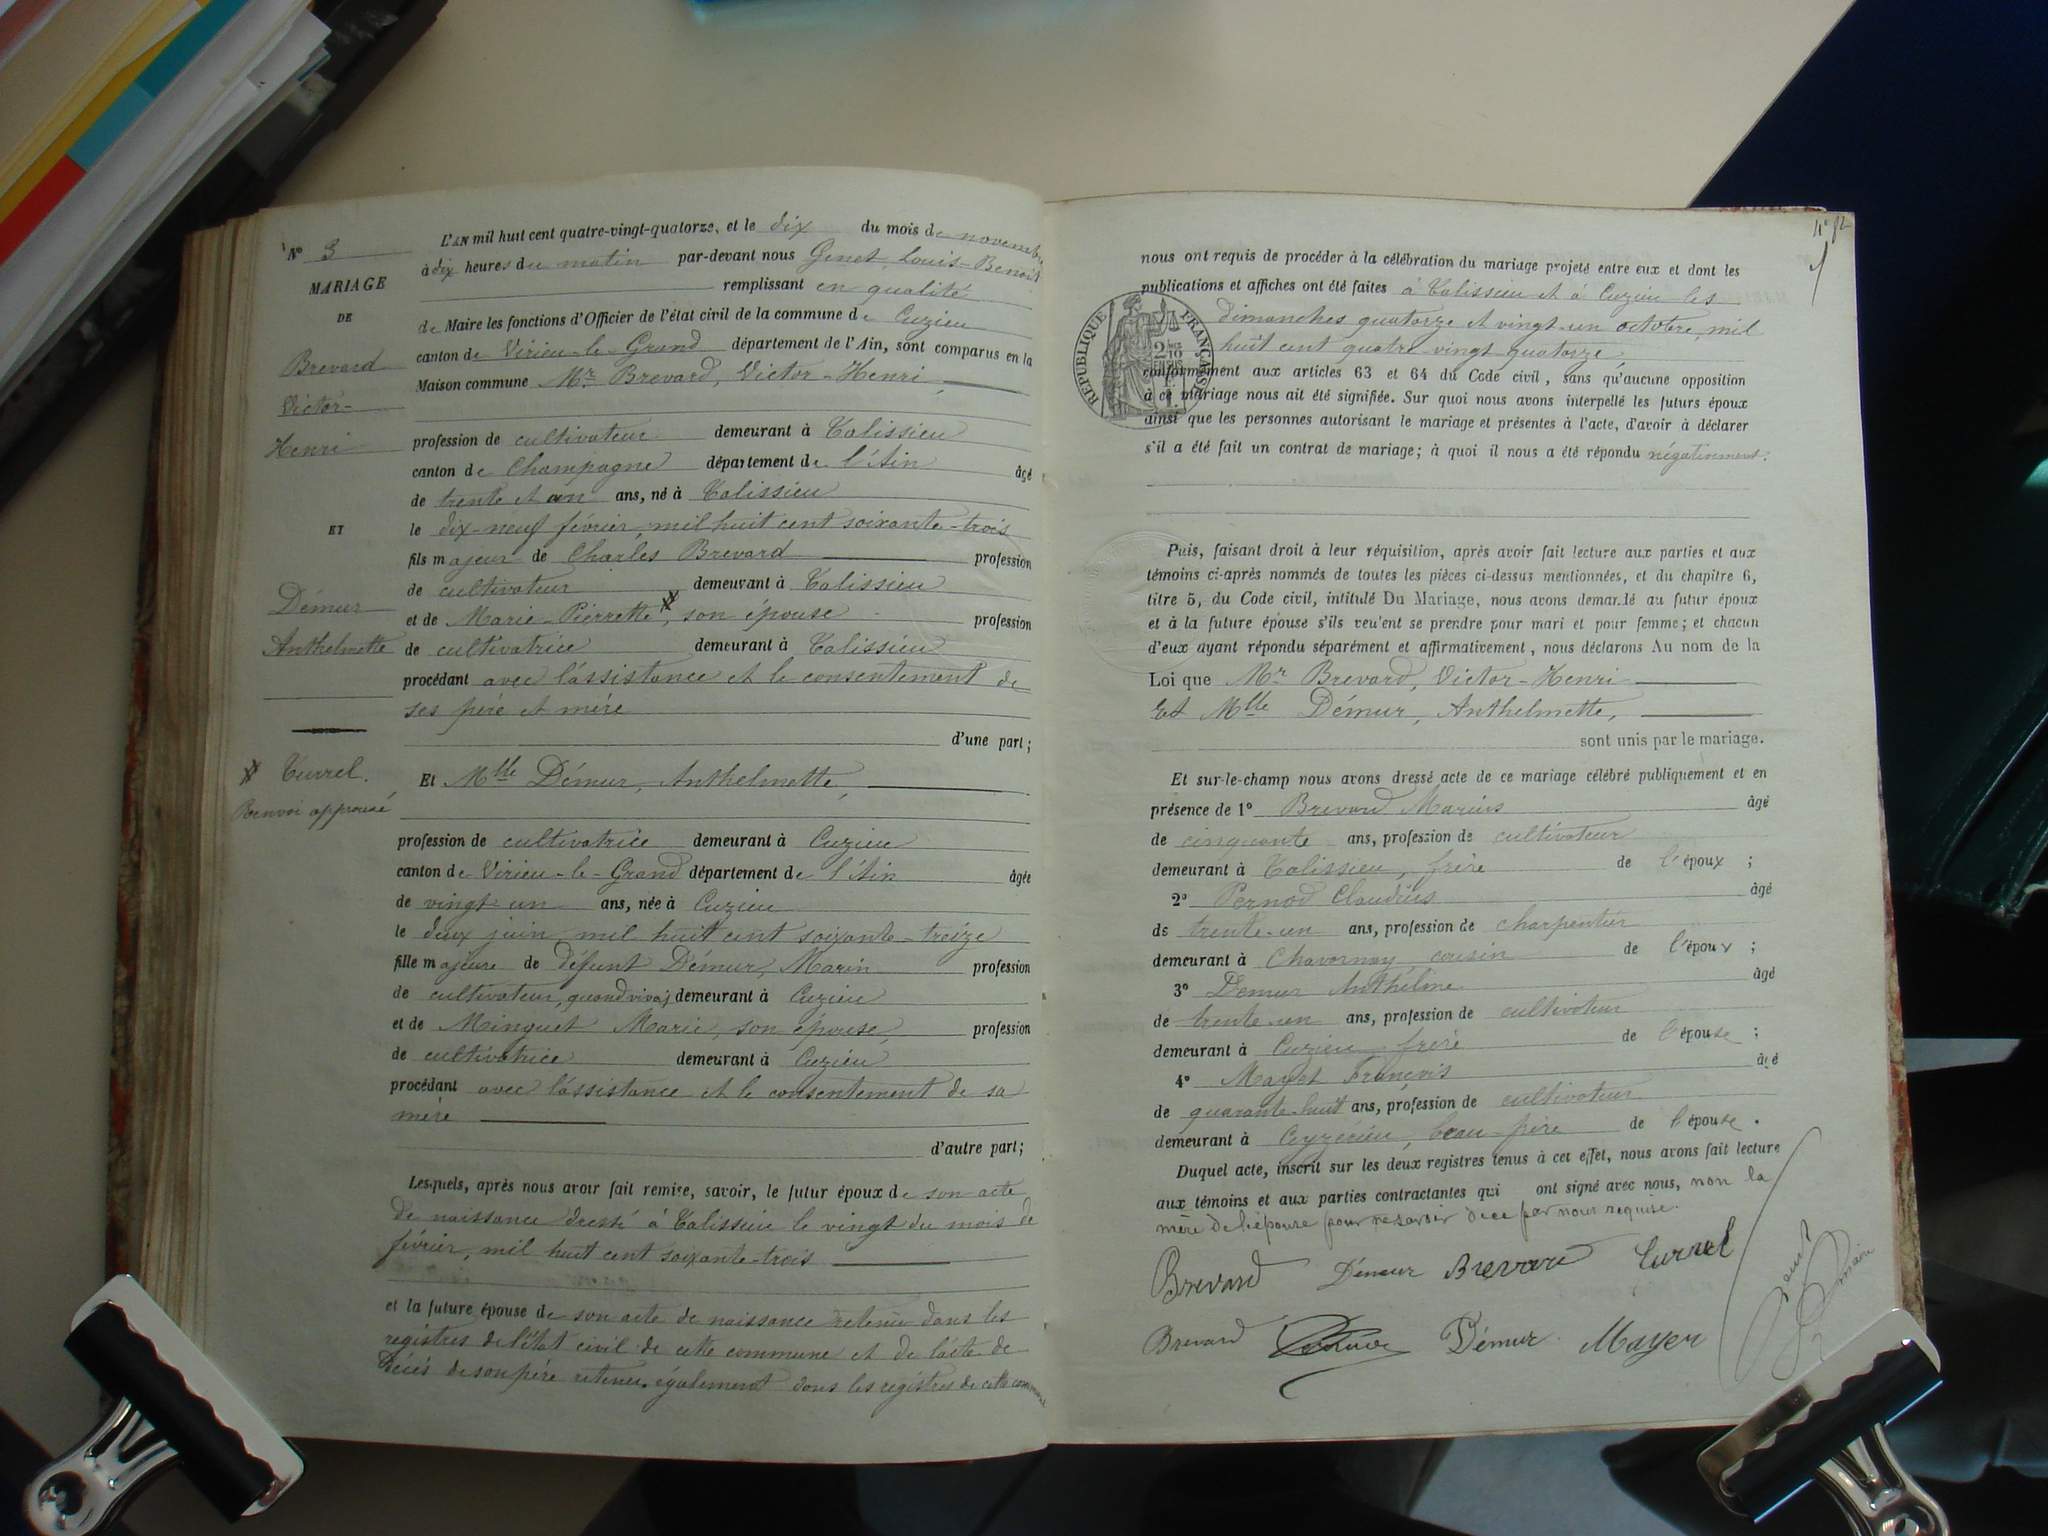 N° 3
MARIAGE
DE
Brevard
Victor-
Henri
ET
Démur
Anthelmette
Turrel.
Renvoi approuvé
L'AN mil huit cent quatre-vingt-quatorze, et le dix du mois de novembre
à dix heures du matin par-devant nous Genet, Louis-Benoit
remplissant en qualité
de Maire les fonctions d'Officier de l'état civil de la commune de Cuzieu
canton de Virieu-le-Grand département de l'Ain, sont comparus en la
Maison commune Mr Brevard, Victor-Henri,
profession de cultivateur demeurant à Talissieu
canton de Champagne département de l'Ain âgé
de trente et un ans, né à Talissieu
le dix-neuf février, mil huit cent soixante-trois
fils majeur de Charles Brevard profession
de cultivateur demeurant à Talissieu
et de Marie-Pierrette, son épouse profession
de cultivatrice demeurant à Talissieu
procédant avec l'assistance et le consentement de
ses père et mère
d'une part;
Et Mlle Démur, Anthelmette,
profession de cultivatrice demeurant à Cuzieu
canton de Virieu-le-Grand département de l'Ain âgée
de vingt-un ans, née à Cuzieu
le deux juin, mil huit cent soixante-treize
fille majeure de défunt Démur, Marin profession
de cultivateur, quand vivait demeurant à Cuzieu
et de Minguet Marie, son épouse, profession
de cultivatrice demeurant à Cuzieu
procédant avec l'assistance et le consentement de sa
mère
d'autre part;
Lesquels, après nous avoir fait remise, savoir, le futur époux de son acte
de naissance dressé à Talissieu le vingt du mois de
février, mil huit cent soixante-trois
et la future épouse de son acte de naissance retenu dans les
registres de l'état civil de cette commune et de l'acte de
décès de son père retenu également dans les registres de cette commune
nous ont requis de procéder à la célébration du mariage projeté entre eux et dont les
publications et affiches ont été faites à Talissieu et à Cuzieu les
dimanches quatorze et vingt-un octobre, mil
huit cent quatre-vingt quatorze,
RÉPUBLIQUE FRANÇAISE
conformément aux articles 63 et 64 du Code civil, sans qu'aucune opposition
à ce mariage nous ait été signifiée. Sur quoi nous avons interpellé les futurs époux
ainsi que les personnes autorisant le mariage et présentes à l'acte, d'avoir à déclarer
s'il a été fait un contrat de mariage; à quoi il nous a été répondu négativement.
Puis, faisant droit à leur réquisition, après avoir fait lecture aux parties et aux
témoins ci-après nommés de toutes les pièces ci-dessus mentionnées, et du chapitre 6,
titre 5, du Code civil, intitulé Du Mariage, nous avons demandé au futur époux
et à la future épouse s'ils veulent se prendre pour mari et pour femme; et chacun
d'eux ayant répondu séparément et affirmativement, nous déclarons Au nom de la
Loi que Mr Brevard, Victor-Henri
Et Mlle Démur, Anthelmette,
sont unis par le mariage.
Et sur-le-champ nous avons dressé acte de ce mariage célébré publiquement et en
présence de 1° Brevard Marius âgé
de cinquante ans, profession de cultivateur
demeurant à Talissieu, frère de l'époux;
2° Pernod Claudius âgé
de trente-un ans, profession de charpentier
demeurant à Chavornay cousin de l'époux;
3° Démur Anthélme âgé
de trente-un ans, profession de cultivateur
demeurant à Cuzieu frère de l'épouse;
4° Mayet François âgé
de quarante-huit ans, profession de cultivateur
demeurant à Ceyzérieu, beau-père de l'épouse.
Duquel acte, inscrit sur les deux registres tenus à cet effet, nous avons fait lecture
aux témoins et aux parties contractantes qui ont signé avec nous, non la
mère de l'épouse pour ne savoir de ce par nous requise.
Brevard Démur Brevard Turrel
Brevard Démur Mayer
maire